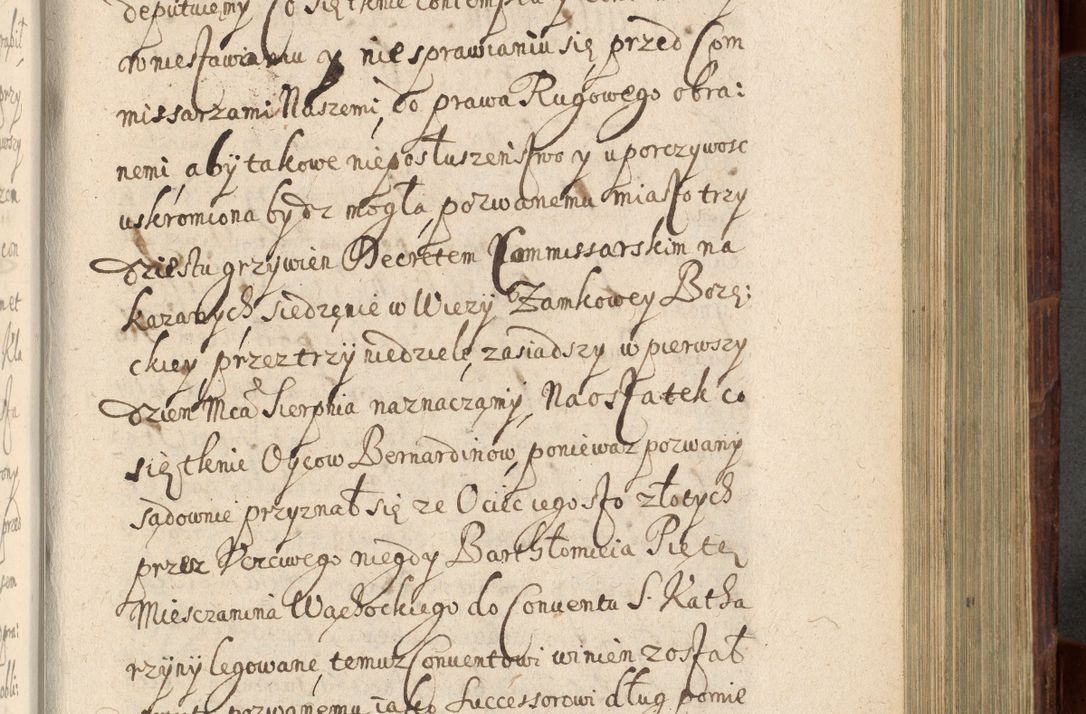 deputuiemy Co się tknie
w niestawianiu y nie sprawianiu się przed Com
missarzami Naszemi, do prawa Rugowego obra:
nemi, aby takowe nieposłuszenstwo y uporczywosc
uskromiona bydz mogła, pozwanemu miasto trzy
dziestu grzywien Decretem Commissarskim na
kazanych siedzenie w Wiezy Zamkowey Bozę:
ckiey przez trzy niedziele, zasiadszy w pierwszy
dzien Mca Sierpnia naznaczamy, Na ostatek co
się tknie Oycow Bernardinow, poniewaz pozwany
sądownie przyznał się ze Ociec iego sto złotych
przez niegdy Barthłomieia Pietę
Mieszczanina Wąchockiego do Conventu S. Katha
rzyny legowane, temuz Conventowi winien został
pozwanemu, iako Successorowi dług pomie